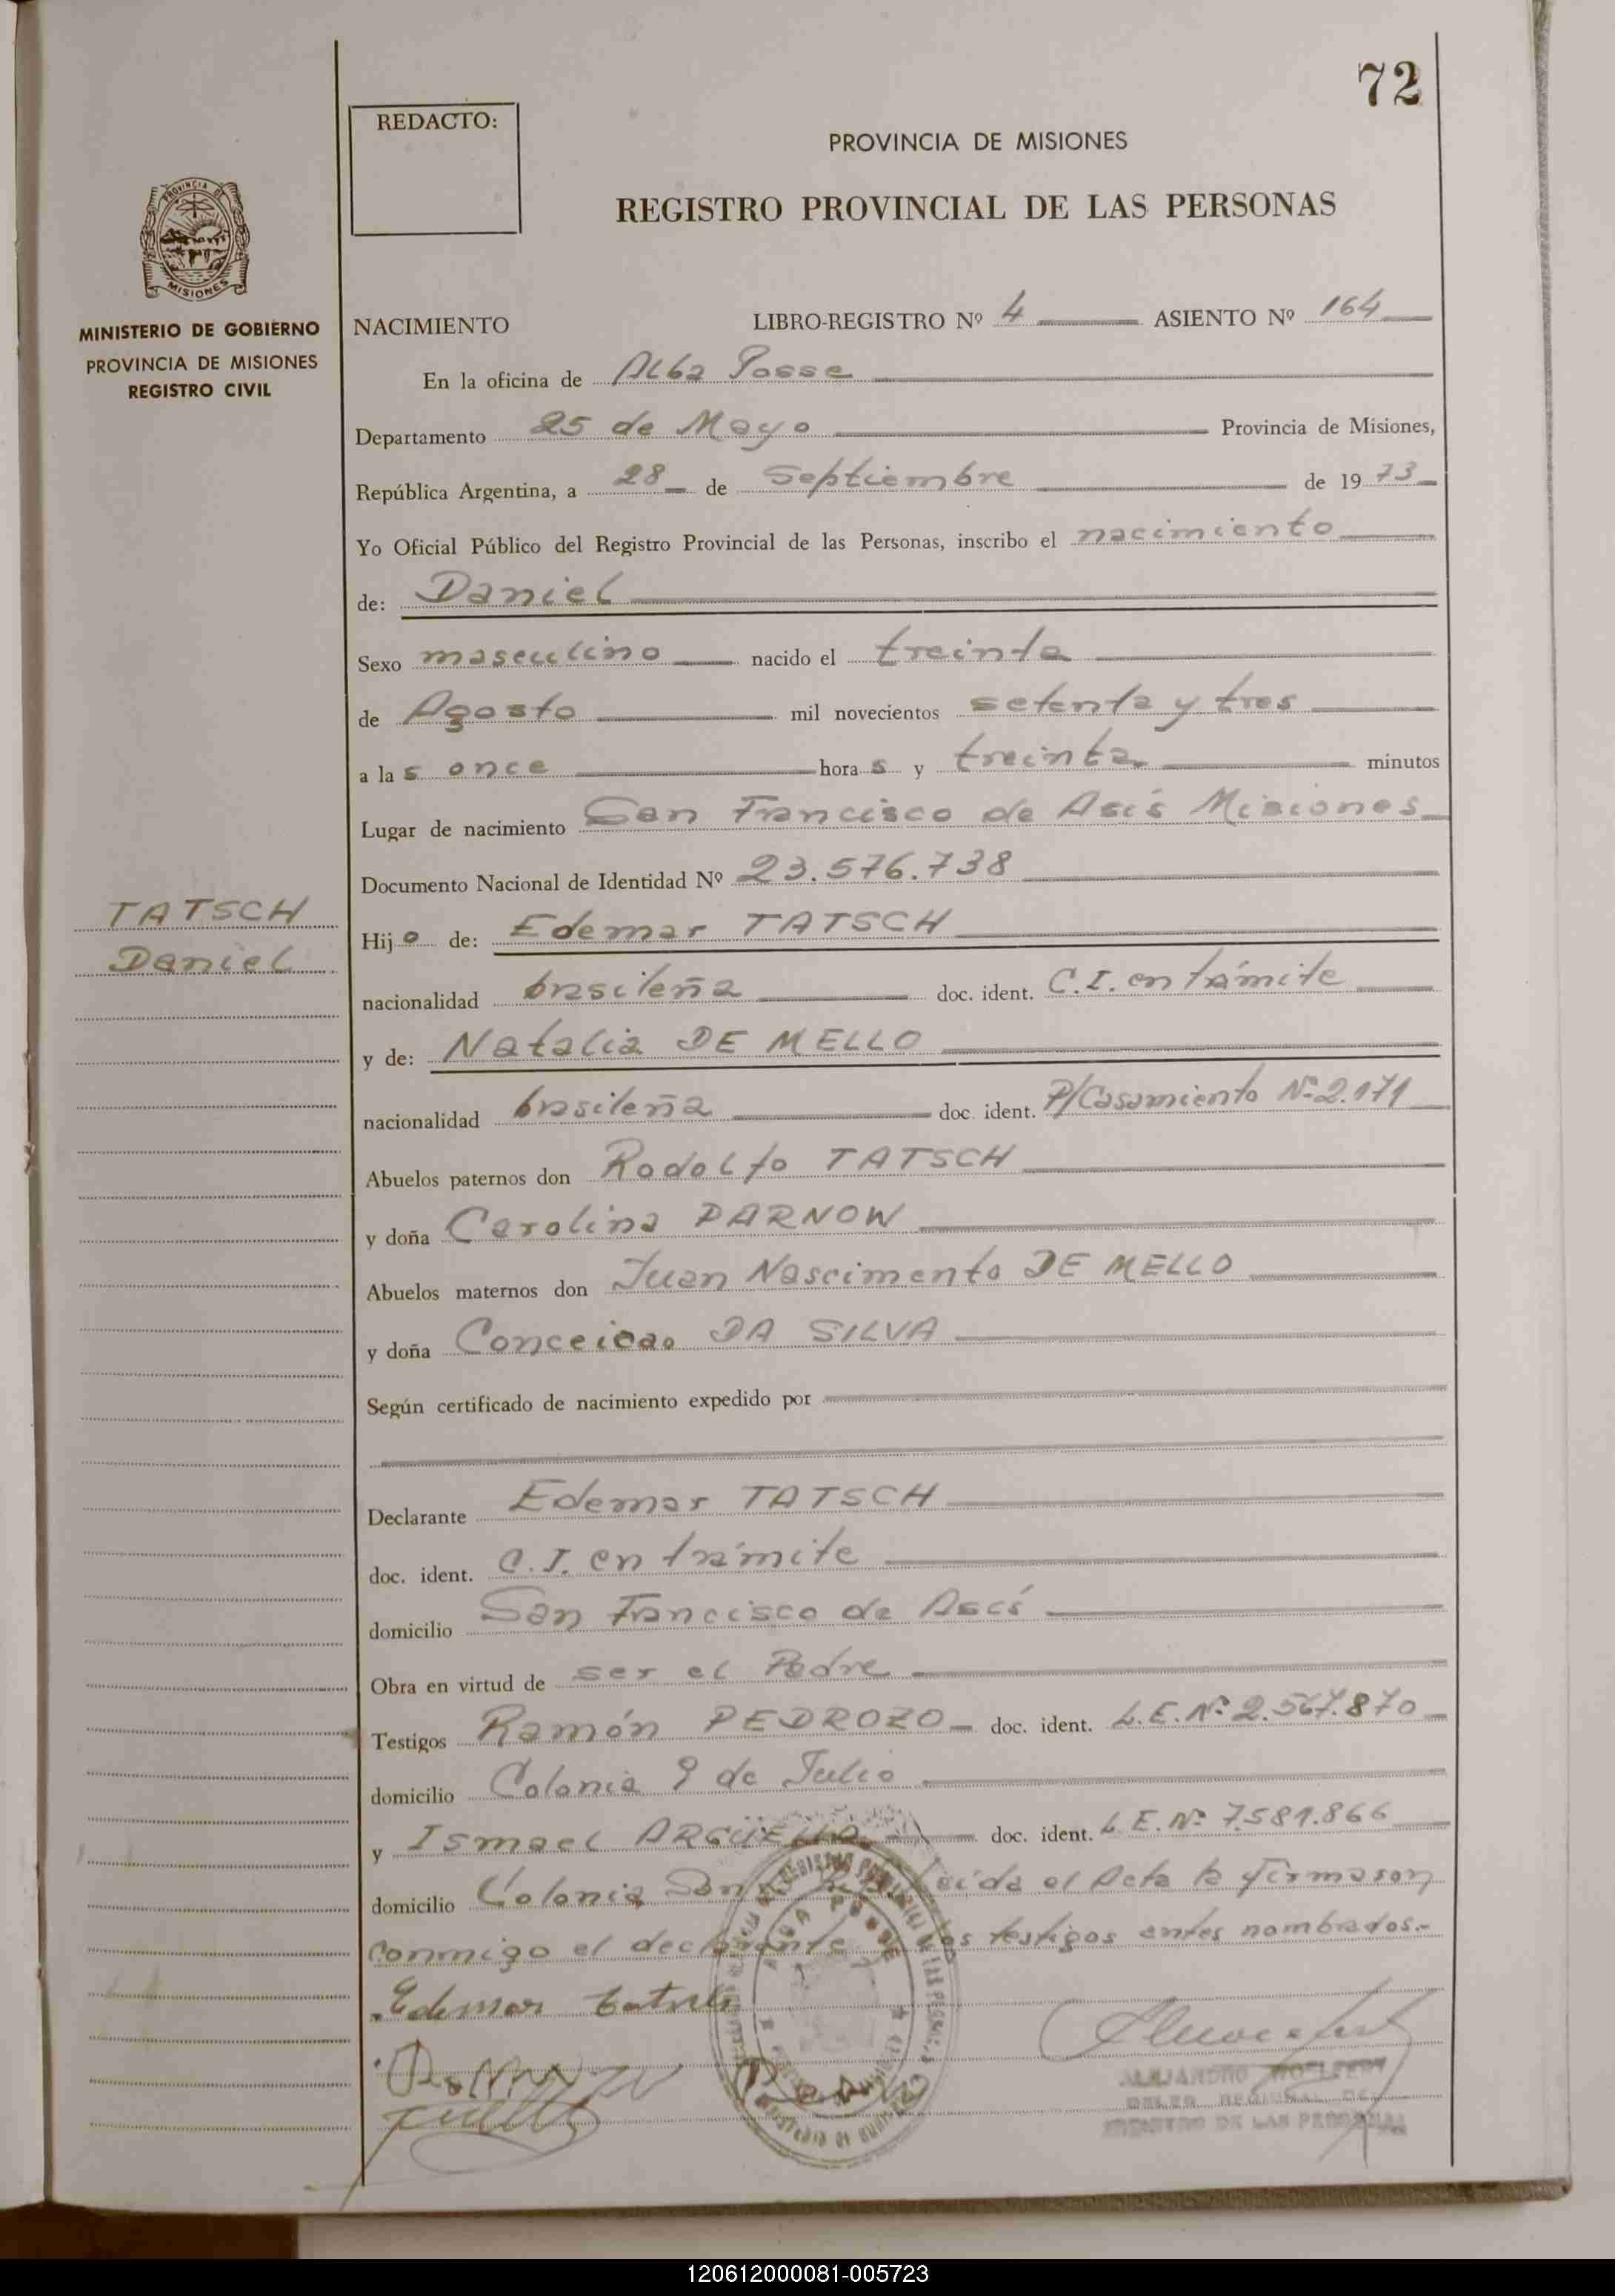 72
REDACTO:
PROVINCIA DE MISIONES
REGISTRO PROVINCIAL DE LAS PERSONAS
PROVINCIA DE
MISIONES
MINISTERIO DE GOBIERNO
PROVINCIA DE MISIONES
REGISTRO CIVIL
NACIMIENTO LIBRO-REGISTRO Nº 4 ASIENTO Nº 164
En la oficina de Alba Posse
Departamento 25 de Mayo Provincia de Misiones,
República Argentina, a 28 de Septiembre de 1973
Yo Oficial Público del Registro Provincial de las Personas, inscribo el nacimiento
de: Daniel
Sexo masculino nacido el treinta
de Agosto mil novecientos setenta y tres
a las once horas y treinta minutos
Lugar de nacimiento San Francisco de Asís Misiones
Documento Nacional de Identidad Nº 23.576.738
TATSCH
Daniel
Hijo de: Edemar TATSCH
nacionalidad brasileña doc. ident. C.I. en trámite
y de: Natalia DE MELLO
nacionalidad brasileña doc. ident. P/Casamiento Nº 2.171
Abuelos paternos don Rodolfo TATSCH
y doña Carolina PARNOW
Abuelos maternos don Juan Nascimento DE MELLO
y doña Conceicao DA SILVA
Según certificado de nacimiento expedido por
Declarante Edemar TATSCH
doc. ident. C.I. en trámite
domicilio San Francisco de Asís
Obra en virtud de ser el Padre
Testigos Ramón PEDROZO doc. ident. L.E.Nº 2.567.870
domicilio Colonia 9 de Julio
y Ismael ARGÜELLO doc. ident. L.E.Nº 7.581.866
domicilio Colonia el Acta la firmason
conmigo el declarante y los testigos antes nombrados.-
Edemar Tatsch
ALEJANDRO
REGISTRO DE LAS PERSONAS
120612000081-005723